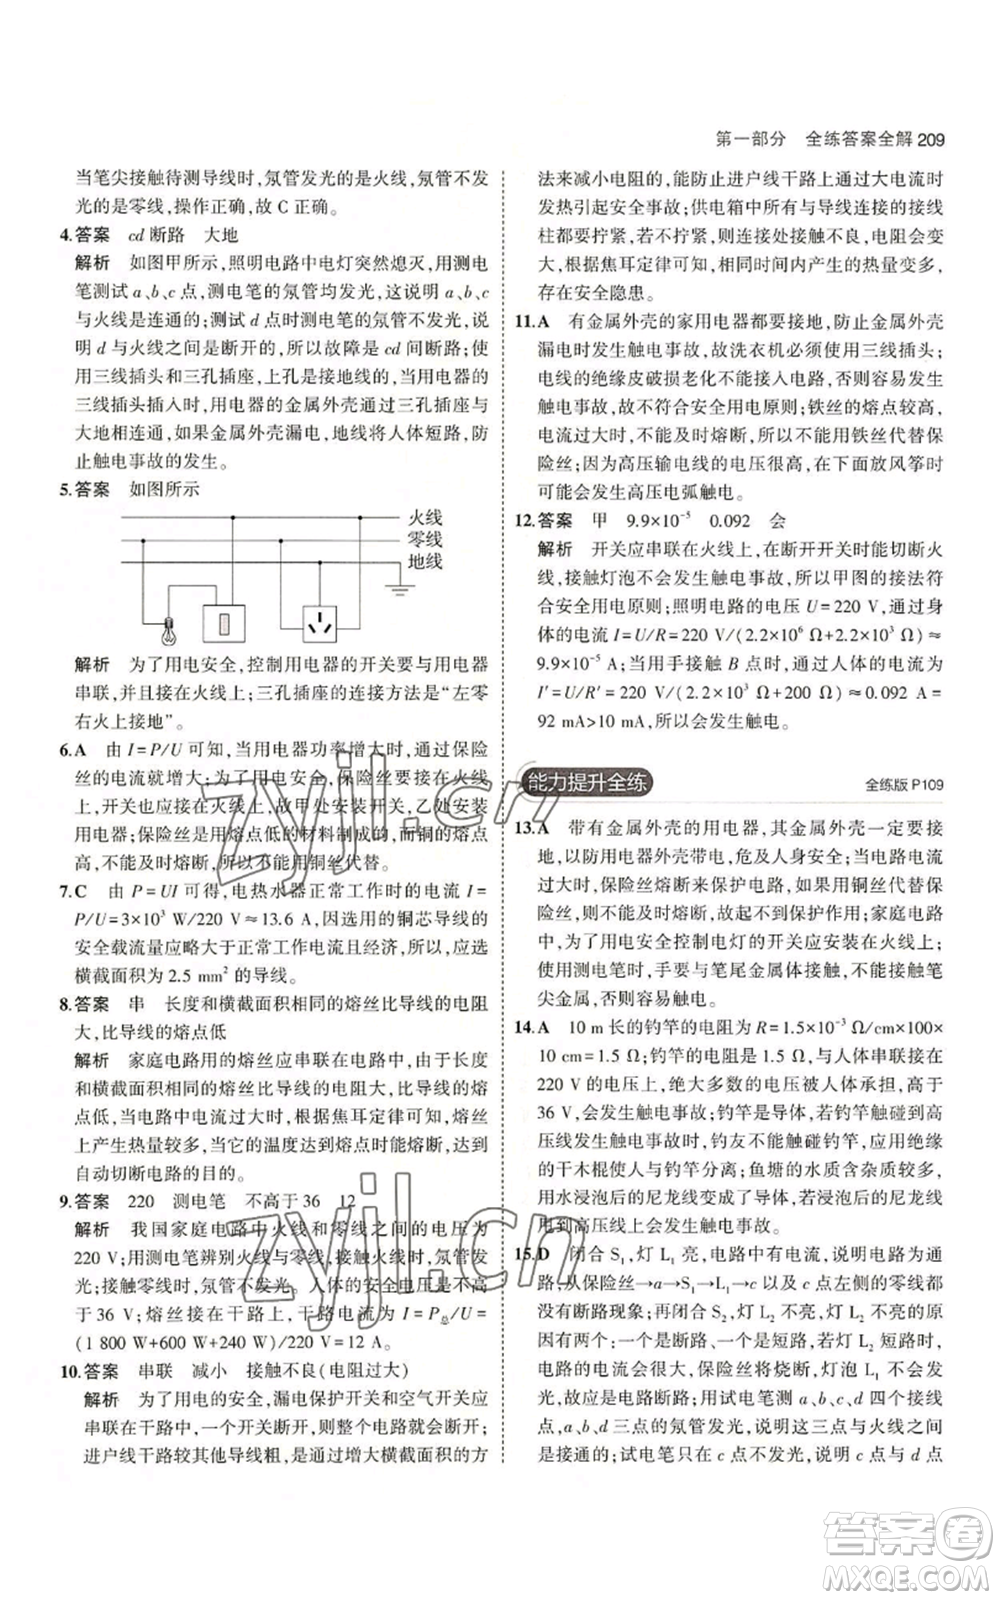 第一部分 全练答案全解 209
当笔尖接触待测导线时,氖管发光的是火线,氖管不发
光的是零线,操作正确,故 C 正确。
4.答案 cd 断路 大地
解析 如图甲所示,照明电路中电灯突然熄灭,用测电
笔测试 a、b、c 点,测电笔的氖管均发光,这说明 a、b、c
与火线是连通的;测试 d 点时测电笔的氖管不发光,说
明 d 与火线之间是断开的,所以故障是 cd 间断路;使
用三线插头和三孔插座,上孔是接地线的,当用电器的
三线插头插入时,用电器的金属外壳通过三孔插座与
大地相连通,如果金属外壳漏电,地线将人体短路,防
止触电事故的发生。
5.答案 如图所示
火线
零线
地线
解析 为了用电安全,控制用电器的开关要与用电器
串联,并且接在火线上;三孔插座的连接方法是“左零
右火上接地”。
6.A 由 I=P/U 可知,当用电器功率增大时,通过保险
丝的电流就增大;为了安全用电,控制用电器时,
开关也应与火线相连,故甲处安装开关,乙处安装用
电器;保险丝是用熔点低的材料制成的,而铜的熔点
高,不能及时熔断,所以不能用铜丝代替。
7.C 由 P=UI 可得,电热水器正常工作时的电流 I=
P/U=3×10³ W/220 V≈13.6 A,因选用的铜芯导线的
安全载流量应略大于正常工作电流且经济,所以,应选
横截面积为 2.5 mm² 的导线。
8.答案 串 长度和横截面积相同的熔丝比导线的电阻
大,比导线的熔点低
解析 家庭电路用的熔丝应串联在电路中,由于长度
和横截面积相同的熔丝比导线的电阻大,比导线的熔
点低,当电路中电流过大时,根据焦耳定律可知,熔丝
上产生热量较多,当它的温度达到熔点时能熔断,达到
自动切断电路的目的。
9.答案 220 测电笔 不高于 36 12
解析 我国家庭电路中火线和零线之间的电压为
220 V;用测电笔辨别火线与零线,接触火线时,氖管发
光;接触零线时,氖管不发光。人体的安全电压是不高
于 36 V;熔丝接在干路上,干路电流为 I=P总/U=
(1 800 W+600 W+240 W)/220 V=12 A。
10.答案 串联 减小 接触不良(电阻过大)
解析 为了用电的安全,漏电保护开关和空气开关应
串联在干路中,一个开关断开,则整个电路就会断开;
进户线干路较其他导线粗,是通过增大横截面积的方
法来减小电阻的,能防止进户线干路上通过大电流时
发热引起安全事故;供电箱中所有与导线连接的接线
柱都要拧紧,若不拧紧,则易接触不良,电阻会变
大,根据焦耳定律可知,相同时间内产生的热量变多,
存在安全隐患。
11.A 有金属外壳的家用电器都要接地,防止金属外壳
漏电时发生触电事故,故洗衣机必须使用三线插头;
电线的绝缘皮破损老化不能接入电路,否则容易发生
触电事故,故不符合安全用电原则;铁丝的熔点较高,
电流过大时,不能及时熔断,所以不能用铁丝代替保
险丝;因为高压输电线的电压很高,在下面放风筝时
可能会发生高压电弧触电。
12.答案 甲 9.9×10⁻⁵ 0.092 会
解析 开关应串联在火线上,在断开开关时能切断火
线,接触灯泡不会发生触电事故,所以甲图的接法符
合安全用电原则;照明电路的电压 U=220 V,通过身
体的电流 I=U/R=220 V/(2.2×10⁶ Ω+2.2×10³ Ω)≈
9.9×10⁻⁵ A;当用手接触 B 点时,通过人体的电流为
I′=U/R′=220 V/(2.2×10³ Ω+200 Ω)≈0.092 A=
92 mA>10 mA,所以会发生触电。
能力提升全练 全练版 P109
13.A 带有金属外壳的用电器,其金属外壳一定要接
地,以防用电器外壳带电,危及人身安全;当电路电流
过大时,保险丝熔断来保护电路,如果用铜丝代替保
险丝,则不能及时熔断,起不到保护作用;家庭电路
中,为了用电安全控制电灯的开关应安装在火线上;
使用测电笔时,手要与笔尾金属体接触,不能接触笔
尖金属,否则容易触电。
14.A 10 m 长的钓竿的电阻为 R=1.5×10⁻³ Ω/cm×100×
10 cm=1.5 Ω;钓竿的电阻是 1.5 Ω,与人体串联接在
220 V 的电压上,绝大多数的电压被人体承担,高于
36 V,会发生触电事故;钓竿是导体,若钓竿触碰到高
压线发生触电事故时,钓友不能触碰钓竿,应用绝缘
的干木棍使人与钓竿分离;鱼塘的水是导体,所以使
用水浸泡后的尼龙线变成了导体,若浸泡后的尼龙线
甩到高压线上会发生触电事故。
15.D 闭合 S₁,灯 L₁ 亮,电路中有电流,说明电路为通
路,从保险丝→a→S₁→L₁→c 以及 c 点左侧的零线都
没有断路现象;再闭合 S₂,灯 L₂ 不亮,灯 L₂ 不亮的原
因有两个:一个是断路、一个是短路,若灯 L₂ 短路时,
电路的电流会很大,保险丝将烧断,灯泡 L₁ 不会发
光,故应是电路断路;用试电笔测 a、b、c、d 四个接线
点,a、b、d 三点的氖管发光,说明这三点与火线之间
是接通的;试电笔只有 c 点不发光,说明 c 点与 d 点
zyjl.cn
zyjl.cn
答案圈
MXQE.COM